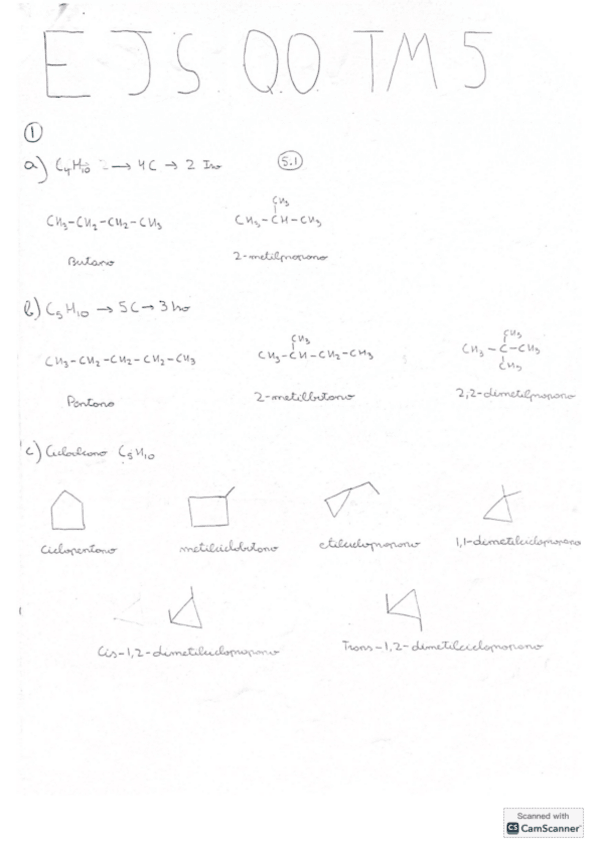 EJS. Q.O. TM5
①
a) C₄H₁₀ → 4C → 2 Iso
5.1
CH₃-CH₂-CH₂-CH₃
CH₃
CH₃-CH-CH₃
Butano
2-metilpropano
b) C₅H₁₀ → 5C → 3 Iso
CH₃-CH₂-CH₂-CH₂-CH₃
CH₃
CH₃-CH-CH₂-CH₃
CH₃
CH₃-C-CH₃
CH₃
Pentano
2-metilbutano
2,2-dimetilpropano
c) Cicloalcano C₅H₁₀
Ciclopentano
metilciclobutano
etilciclopropano
1,1-dimetilciclopropano
Cis-1,2-dimetilciclopropano
Trans-1,2-dimetilciclopropano
Scanned with
CS CamScanner